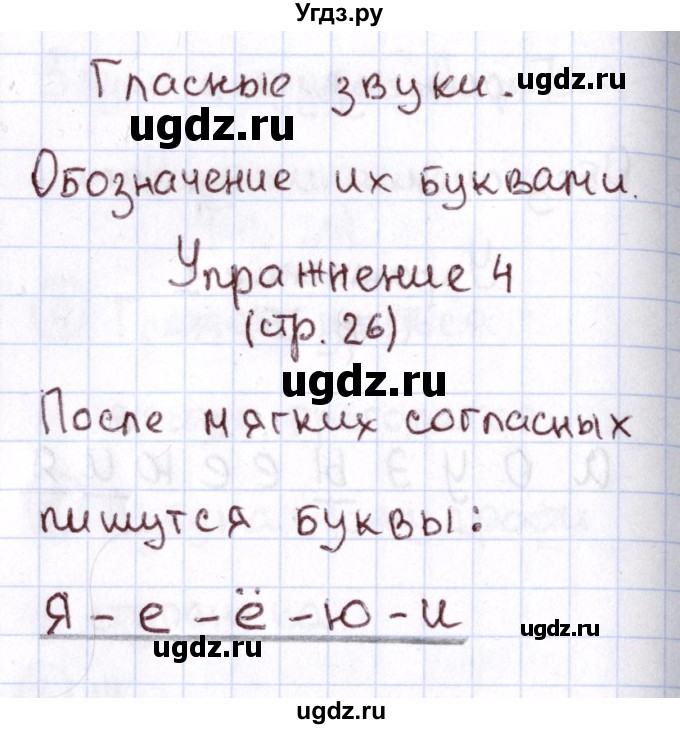 Угдз.ру
Гласные звуки.
ugdz.ru
ugdz.ru
Обозначение их буквами.
Упражнение 4
(стр. 26)
ugdz.ru
После мягких согласных
пишутся буквы:
я - е - ё - ю - и
ugdz.ru
ugdz.ru
ugdz.ru